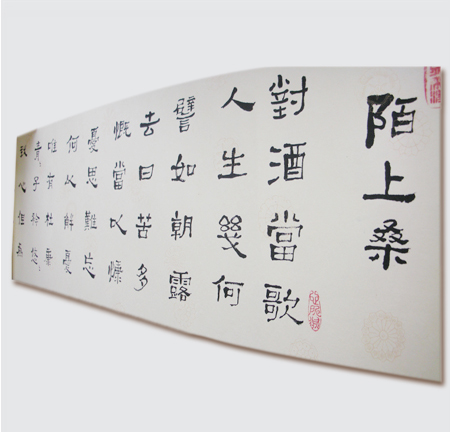 陌上桑
對酒當歌
人生幾何
譬如朝露
去日苦多
慨當以慷
憂思難忘
何以解憂
唯有杜康
青〻子衿悠〻
我心但為